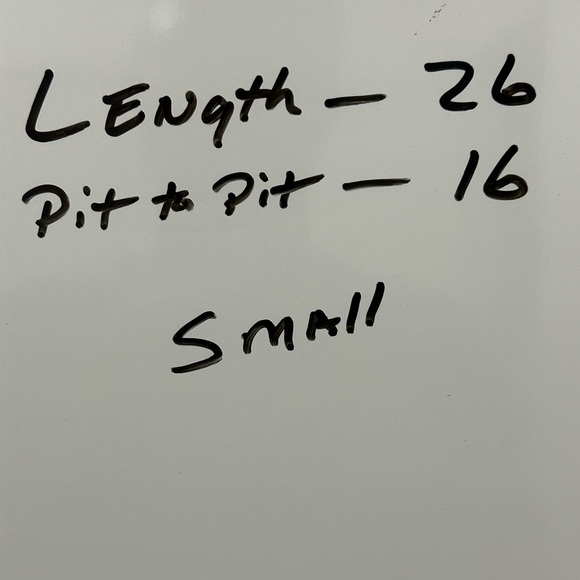 Length - 26
Pit to Pit - 16
Small